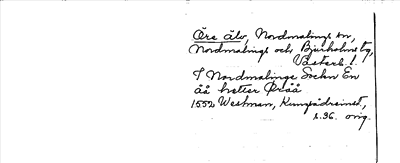 Öre älv, Nordmalings sn,
Nordmalings och Bjurholms tg,
Västerb. l.
I Nordmalings Sochn En
åå hetter Öråå
1552 Westman, Kungsådreinst,
s. 36. orig.